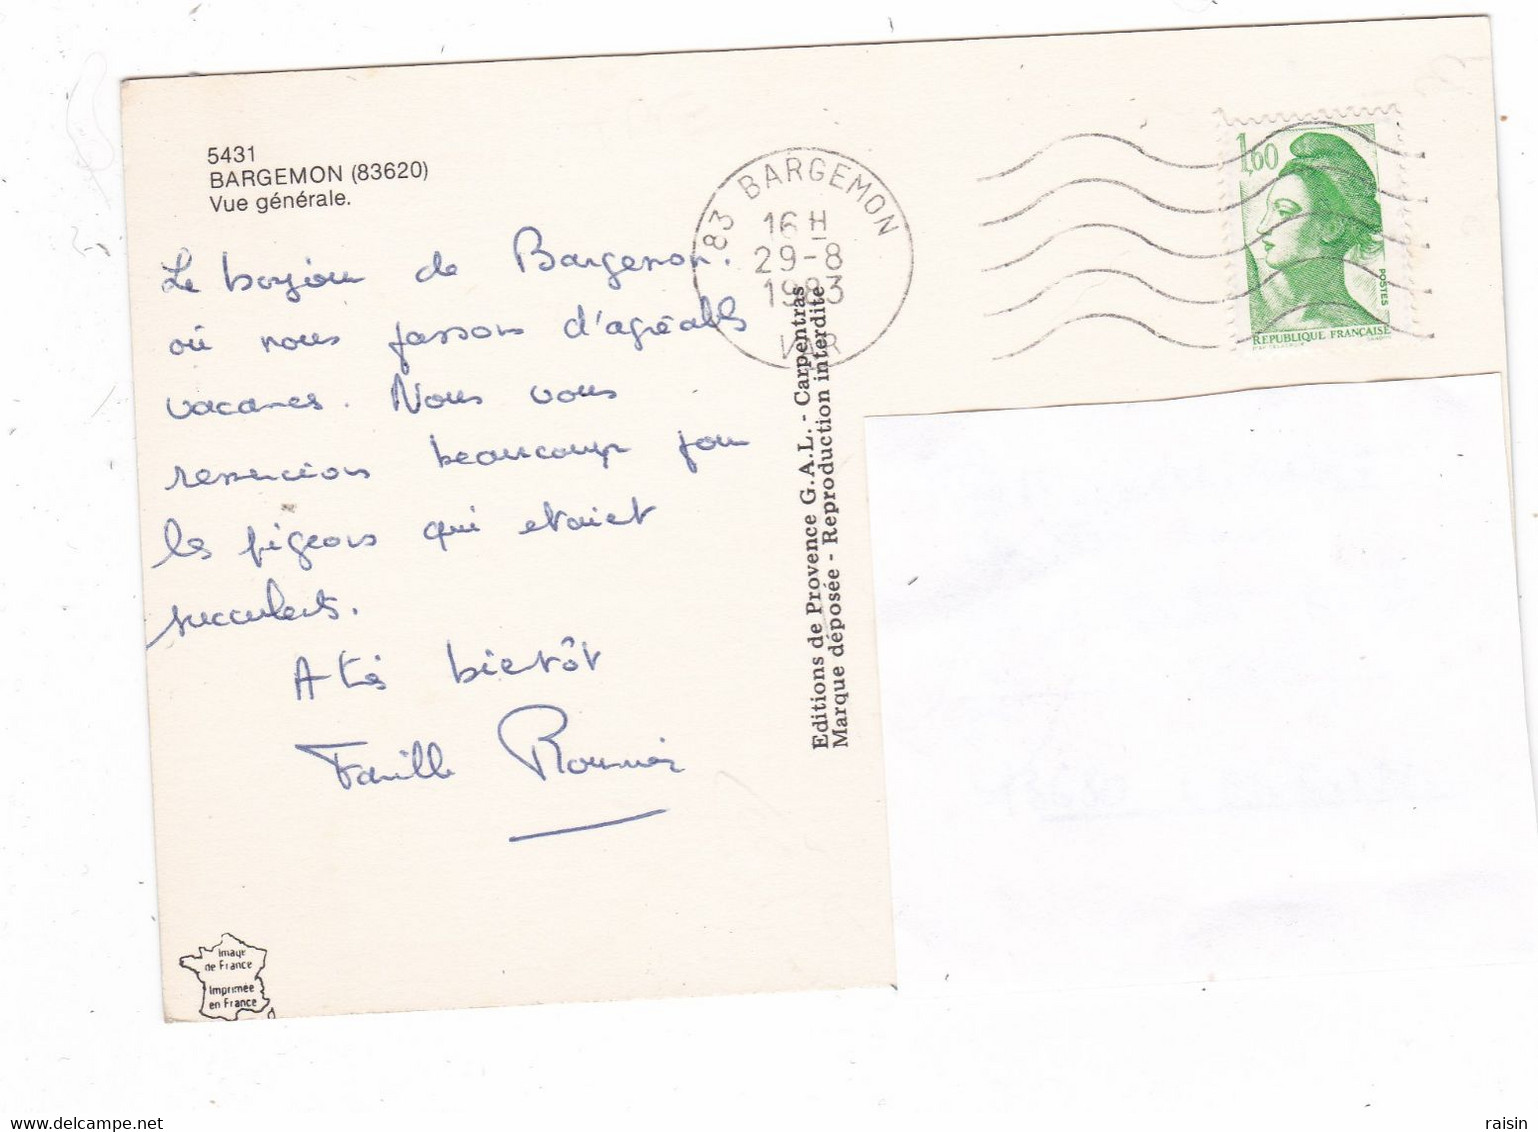 5431
BARGEMON (83620)
Vue générale.
Le bonjour de Bargemon.
où nous passons d'agréables
vacances. Nous vous
remercions beaucoup pour
les pigeons qui etaient
succulents.
A très bientôt
Famille
83 BARGEMON
16 H
29-8
1983
VAR
1,60
POSTES
REPUBLIQUE FRANÇAISE
Editions de Provence G.A.L. - Carpentras
Marque déposée - Reproduction interdite
Image
de France
Imprimée
en France
raisin